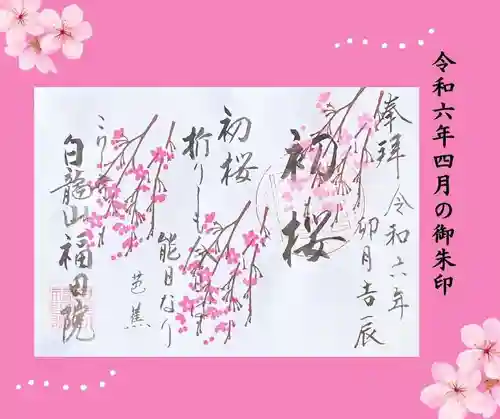 令和六年四月の御朱印
奉拝
令和六年
卯月吉辰
初桜
初桜
折りしも今日は
能日なり
芭蕉
白龍山福田院